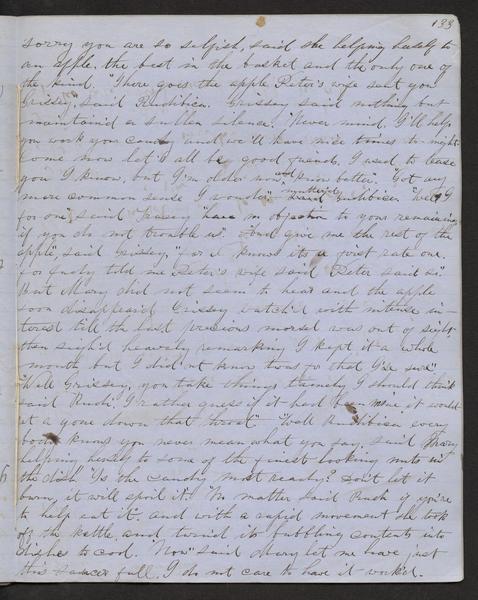 133
sorry you are so selfish, said she helping herself to
an apple, the best in the basket and the only one of
the kind. "There goes the apple Peter's wife sent you
Grissey, said Rudibica. Grissey said nothing but
maintained a sullen silence. "Never mind, I'll help
you work your candy and we'll have nice times to night
come now let's all be good friends, I used to tease
you I know, but I'm older now and know better." "Got any
more common sense I wonder" said Rudibica "Well I
for one" said "have no objection to your remaining
if you do not trouble us". "And give me the rest of the
apple", said Grissey, "for I knows its a first rate one.
for Judy told me Peter's wife said Peter said so".
But Mary did not seem to hear and the apple
soon disappeard Grissey watch'd with intense in-
terest till the last precious morsel was out of sight
then sigh'd heavily remarking "I kept it a whole
month but I did'nt know twas for that I'se sure"
"Well Grissey, you take things tamely I should think"
said Ruch. I rather guess if it had been mine, it would
nt a gone down that throat" "Well Rudibica every
body knows you never mean what you say, said Mary
helping herself to some of the finest looking nuts in
the dish" "Is the candy most ready? Don't let it
burn, it will spoil it" "No matter said Ruch if you're
to help eat it". and with a rapid movement she took
off the kettle and turned its bubbling contents into
dishes to cool. "Now" said Mary let me have just
this saucer full. I do not care to have it work'd.